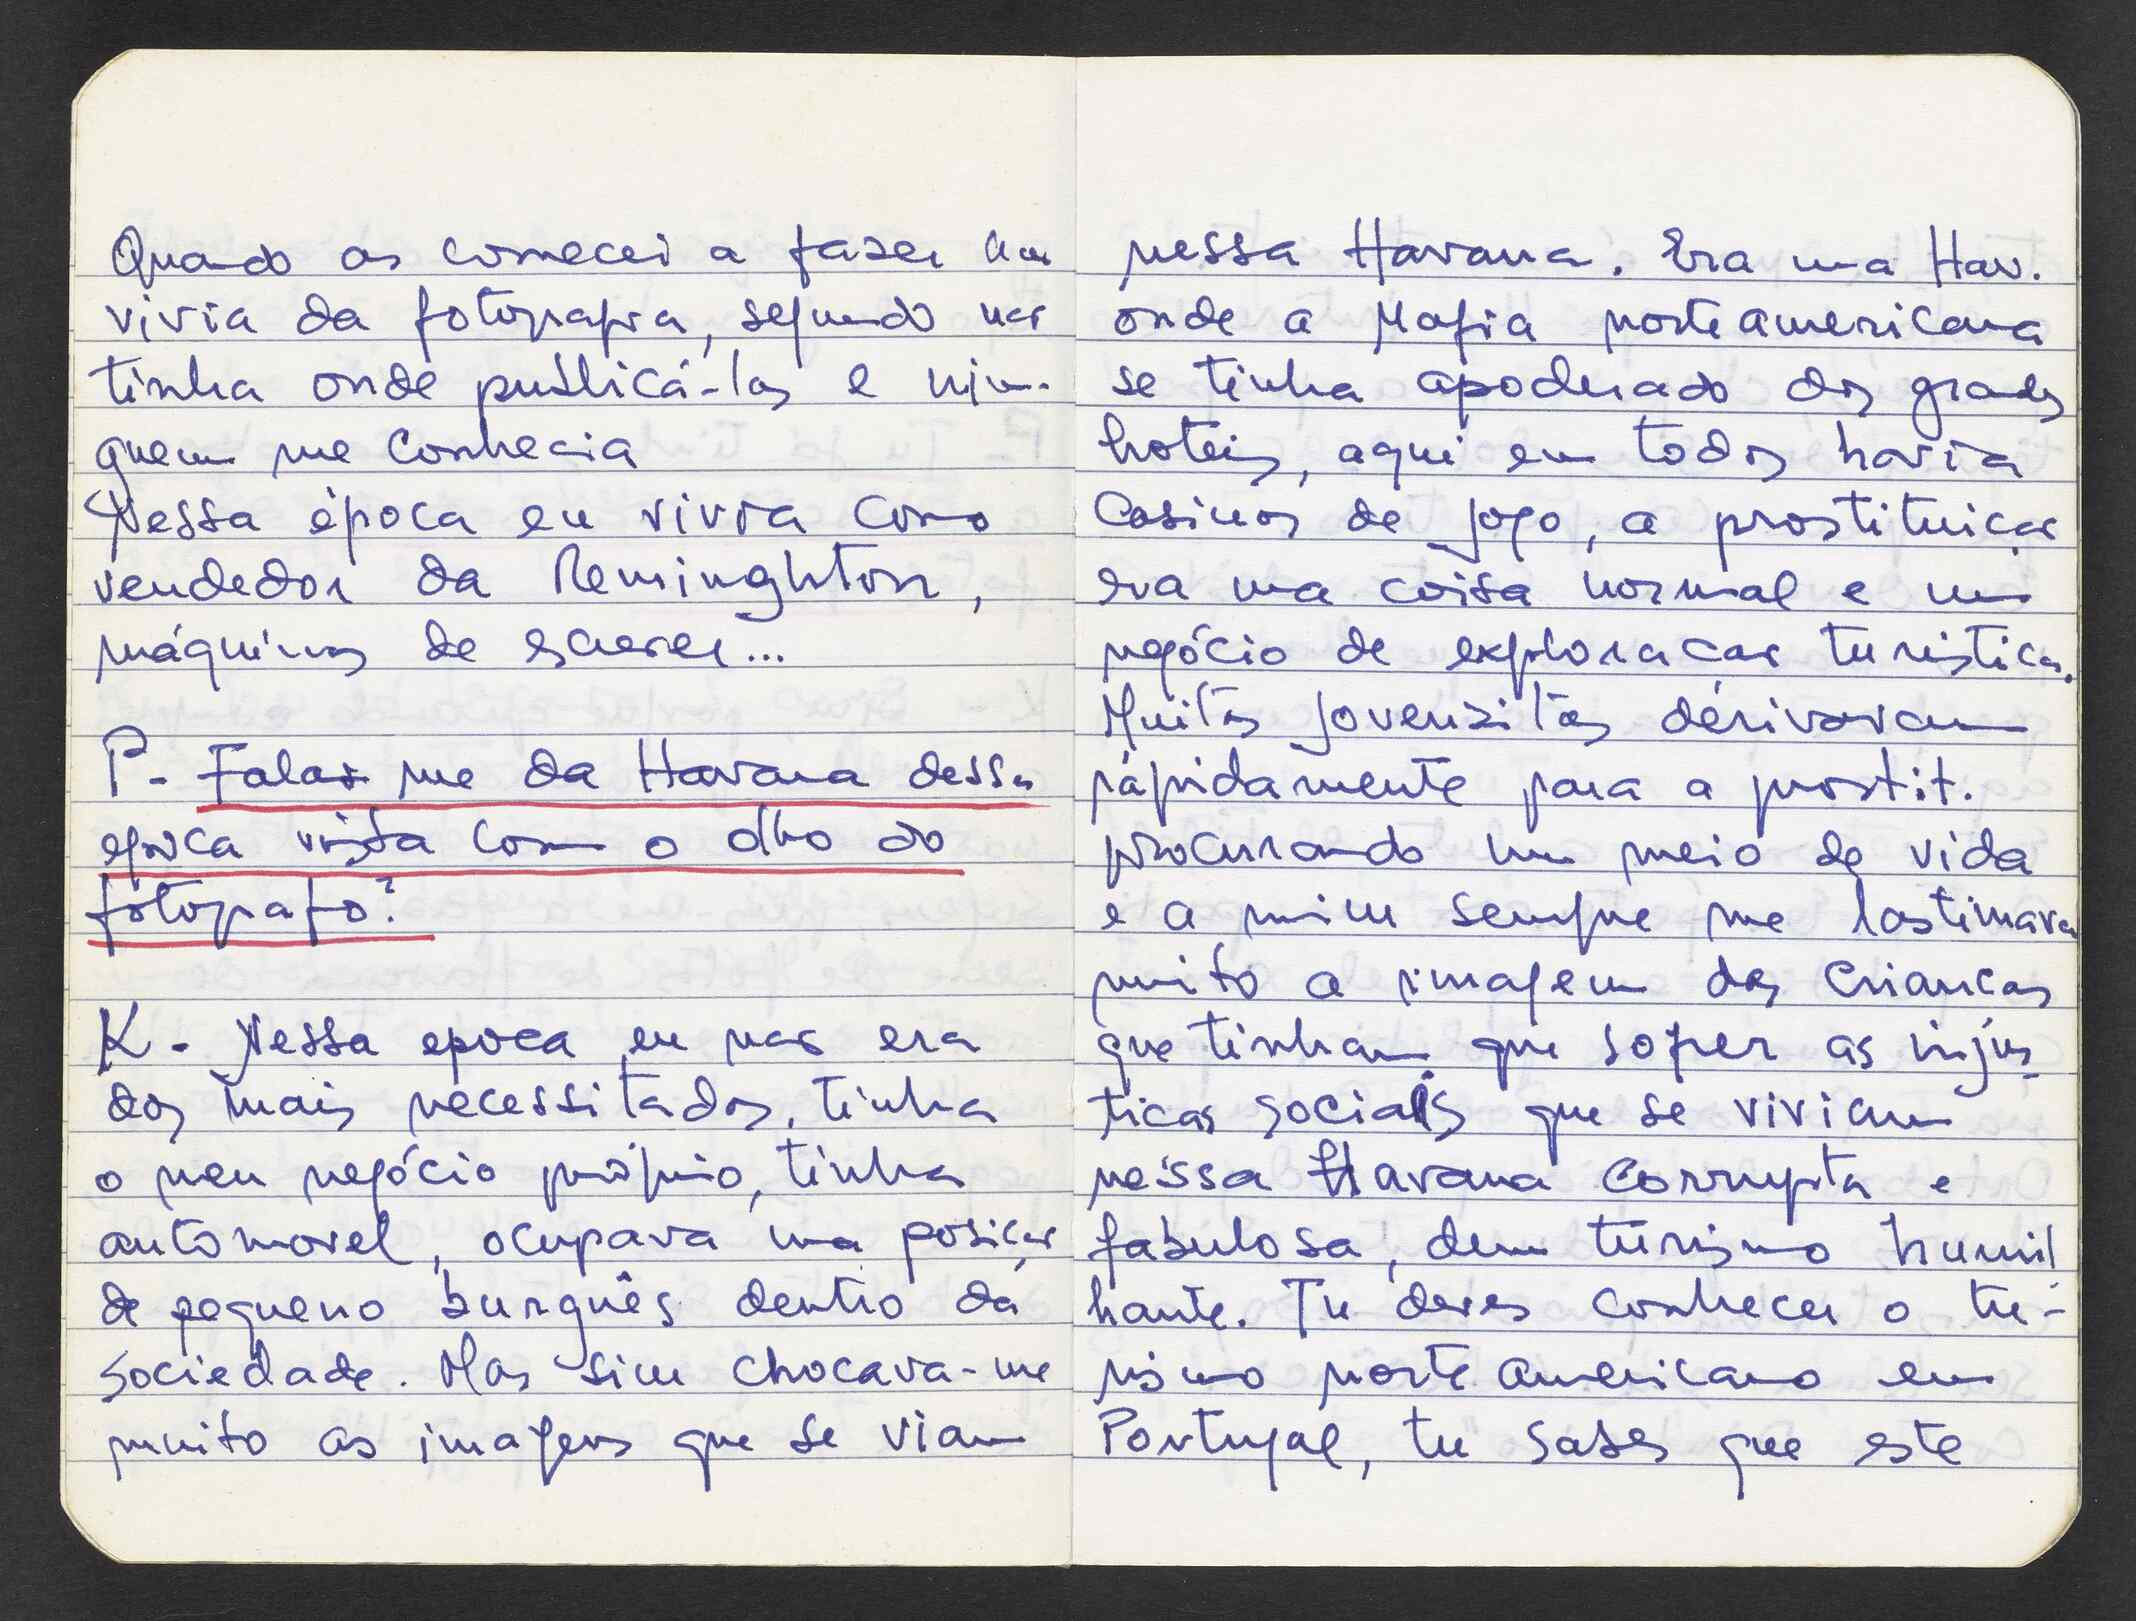 Quando as comecei a fazer nem
vivia da fotografia, segundo nao
tinha onde publicá-las e nin-
guem me conhecia
Nessa época eu vivia como
vendedor da Reminghton,
máquinas de escrever...
P- Fala-me da Havana dessa
epoca vista com o olho do
fotografo?
K- Nessa epoca eu nao era
dos mais necessitados, tinha
o meu negócio próprio, tinha
automovel, ocupava uma posiçao
de pequeno burguês dentro da
sociedade. Mas sim chocava-me
muito as imagens que se viam
nessa Havana. Era uma Hav.
onde a Mafia norteamericana
se tinha apoderado dos grandes
hoteis, aqui em todos havia
Casinos de jogo, a prostituiçao
era uma coisa normal e um
negócio de exploraçao turistica.
Muitas jovenzitas derivavam
rápidamente para a prostit.
procurando um meio de vida
e a mim sempre me lastimava
muito a imagem das crianças
que tinham que sofrer as injus-
tiças sociais que se viviam
nessa Havana corrupta e
fabulosa, dum turismo humil
hante. Tu deves conhecer o tu-
rismo norte americano em
Portugal, tu sabes que este